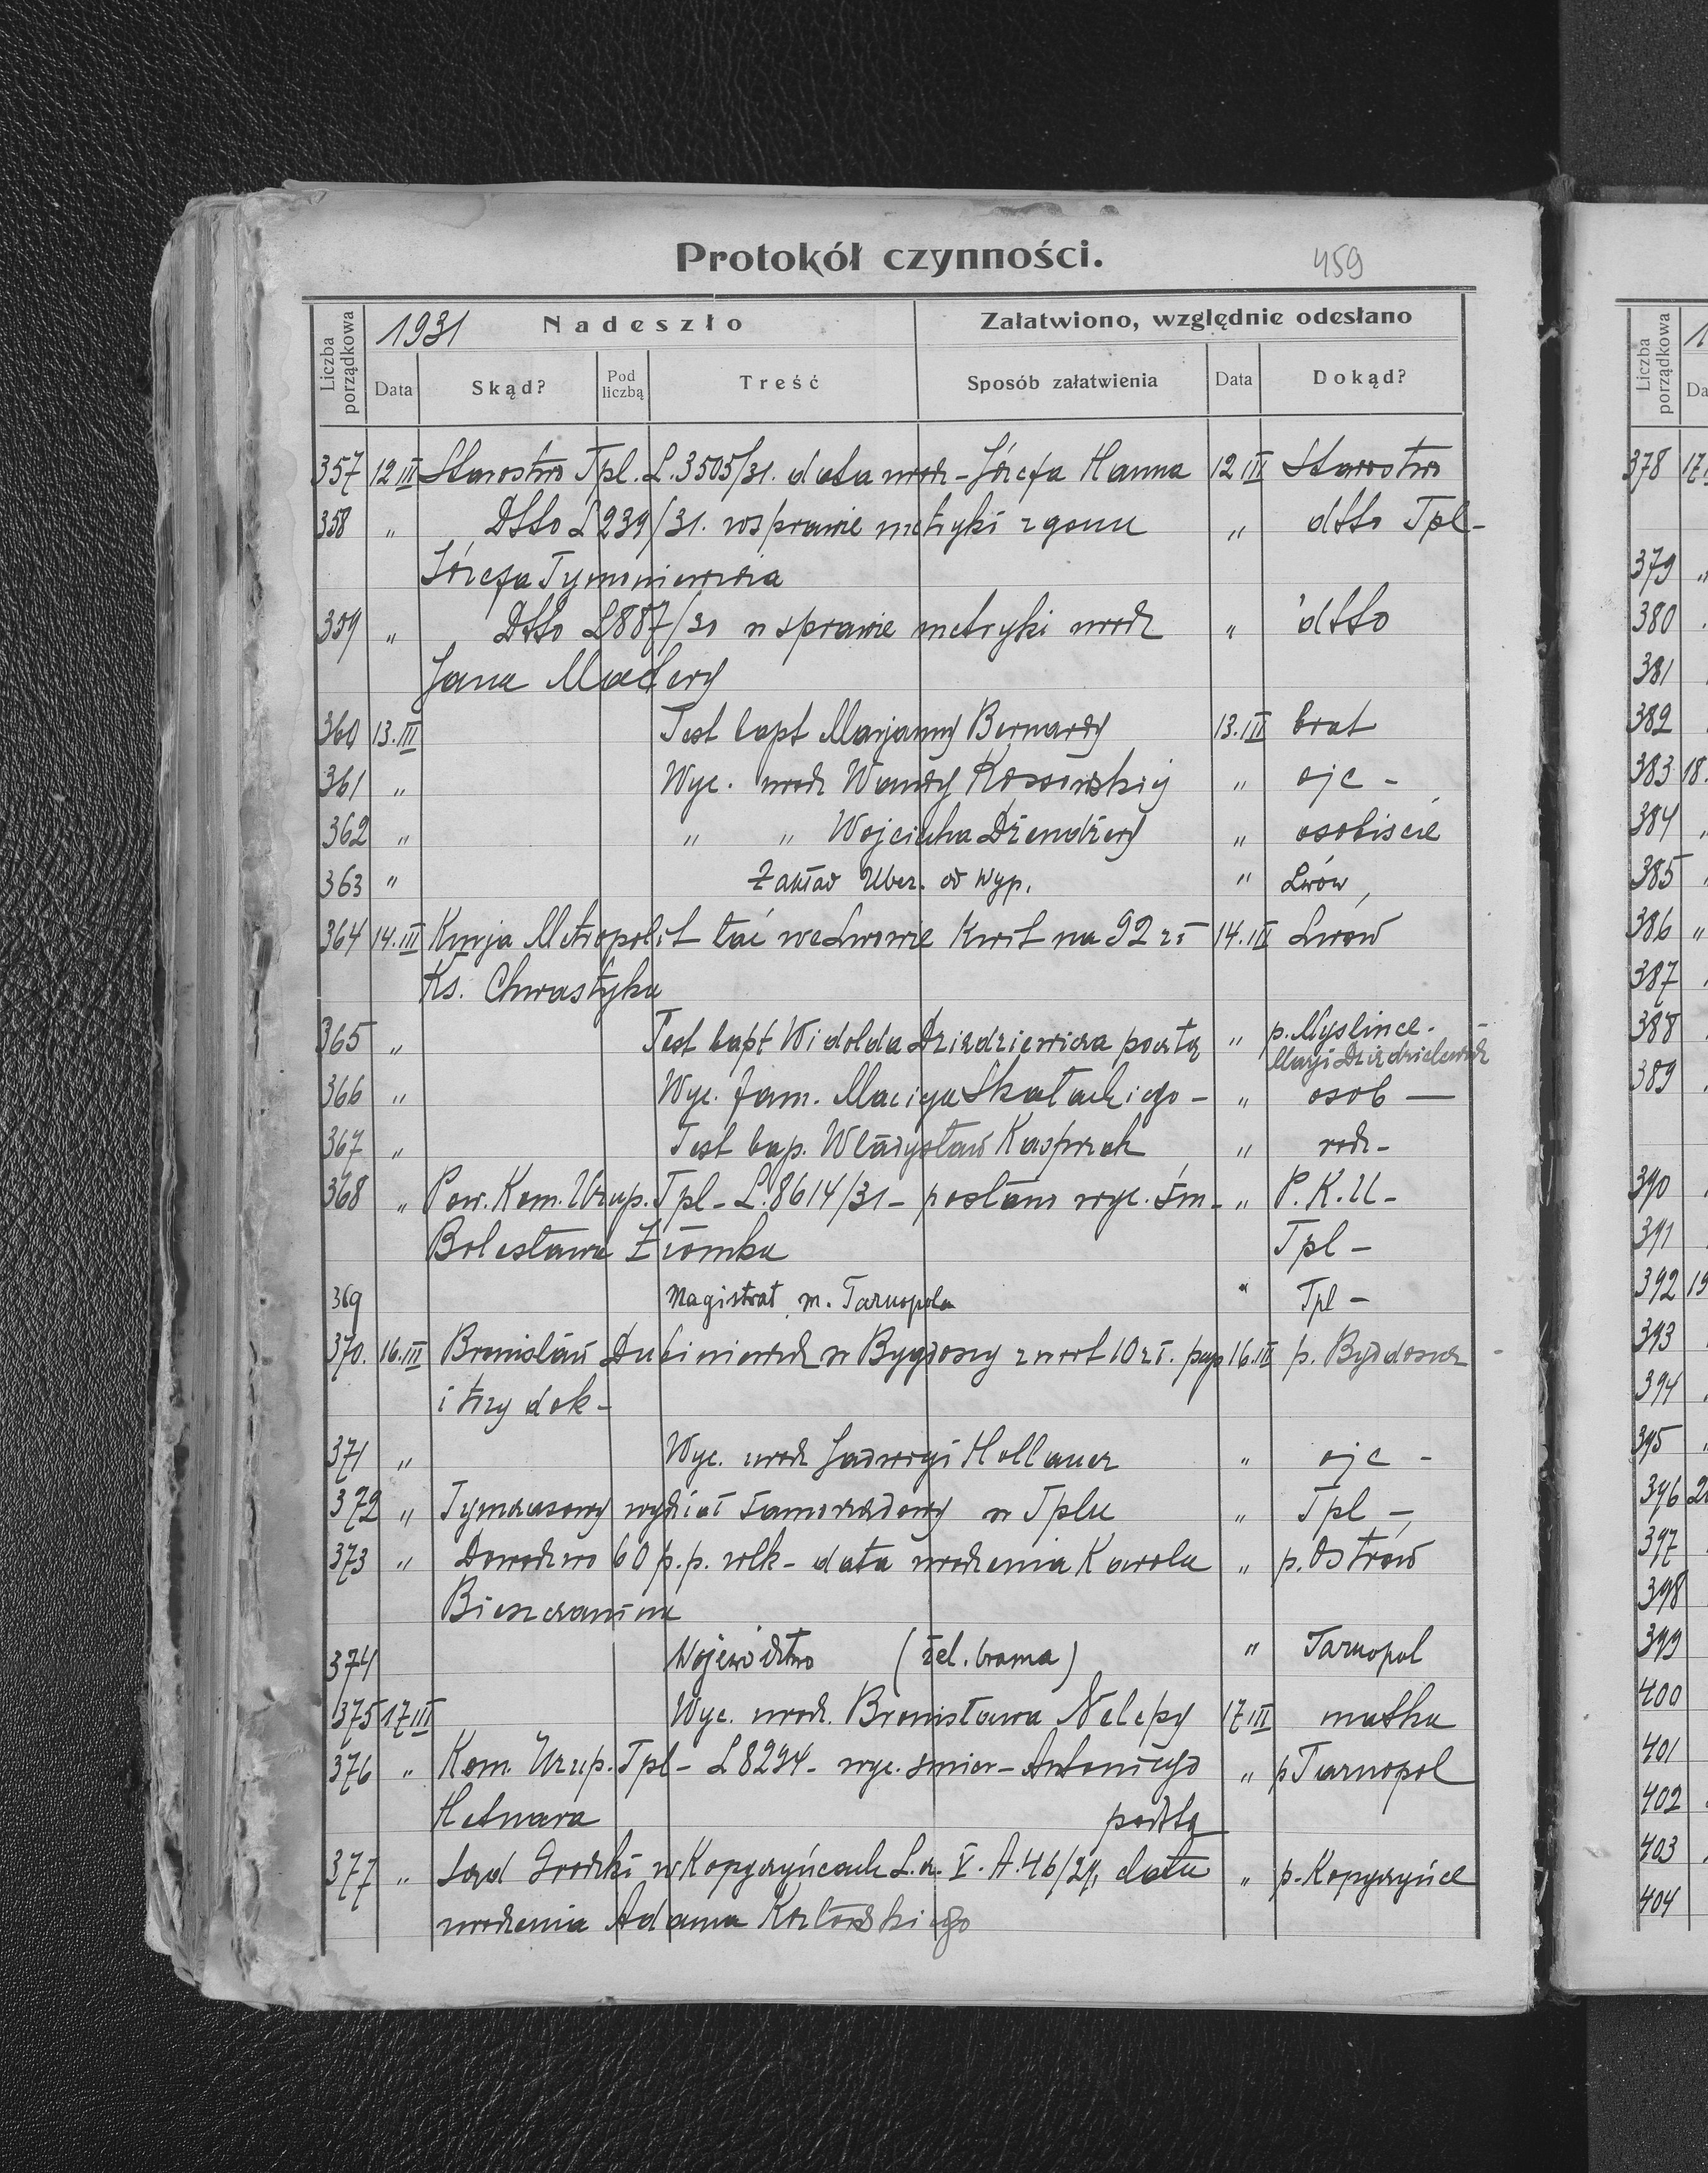 Protokół czynności.
459
Liczba porządkowa
1931 Nadeszło
Załatwiono, względnie odesłano
Data Skąd? Pod liczbą Treść Sposób załatwienia Data Dokąd?
357 12 III Starostwo Tpl. L. 3505/31. data urodz - Józefa Hanna 12 III Starostwo
358 " Dtto L 239/31. w sprawie metryki zgonu " dtto Tpl -
Józefa Tymoniewicza
359 " Dtto L 887/30 w sprawie metryki urodz " dtto
Jana Macery
360 13. III Test bapt Marjanny Bernardy 13. III brat
361 " Wyc. urodz Wandy Kossowskiej " ojc -
362 " " " Wojciecha Dżendżery " osobiście
363 " Zakład Ubez. od Wyp. " Lwów
364 14. III Kurja Metropolit łać we Lwowie Kwit na 92 zł 14. III Lwów
Ks. Chwastyka
365 " Test bapt Widolda Dziedziewicza pocztą " p. Myslince -
Maryi Dziedzielewicz
366 " Wyc. fam. Macieja Skałackiego - " osob —
367 " Test bap. Władysław Kasprzak " rodz -
368 " Pow. Kom. Uzup. Tpl - L. 8614/31 - posłano wyc. śm - " P. K. U -
Bolesława Ziomka Tpl -
369 Magistrat m. Tarnopola " Tpl -
370. 16. III Bronisław Dubiniewicz w Bygdoszcy zwrot 10 zł. pap 16. III p. Bydgoszcz
i trzy dok -
371 " Wyc. urodz Jadwigi Hollauer " ojc -
372 " Tymczasowy wydział samorządowy w Tplu " Tpl -
373 " Dowodztwo 60 p. p. wlk - data urodzenia Karola " p. Ostrów
Bieszczanina
374 Województwo (żel. brama) " Tarnopol
375 17 III Wyc. urodz. Bronisława Nelepy 17 III matka
376 " Kom. Uzup. Tpl - L 8294 - wyc. śmier - Antoniego " p Tarnopol
Hetnara pocztą
377 " Sąd Grodzki w Kopyczyńcach L. cz. V. A. 46/29, data " p. Kopyczyńce
urodzenia Adama Kozłowskiego
Liczba porządkowa
1
Da
378 17
379 "
380
381
382
383 18.
384 "
385 "
386 "
387
388
389
390
391
392 19
393
394
395 "
396 2
397
398
399
400
401
402
403
404